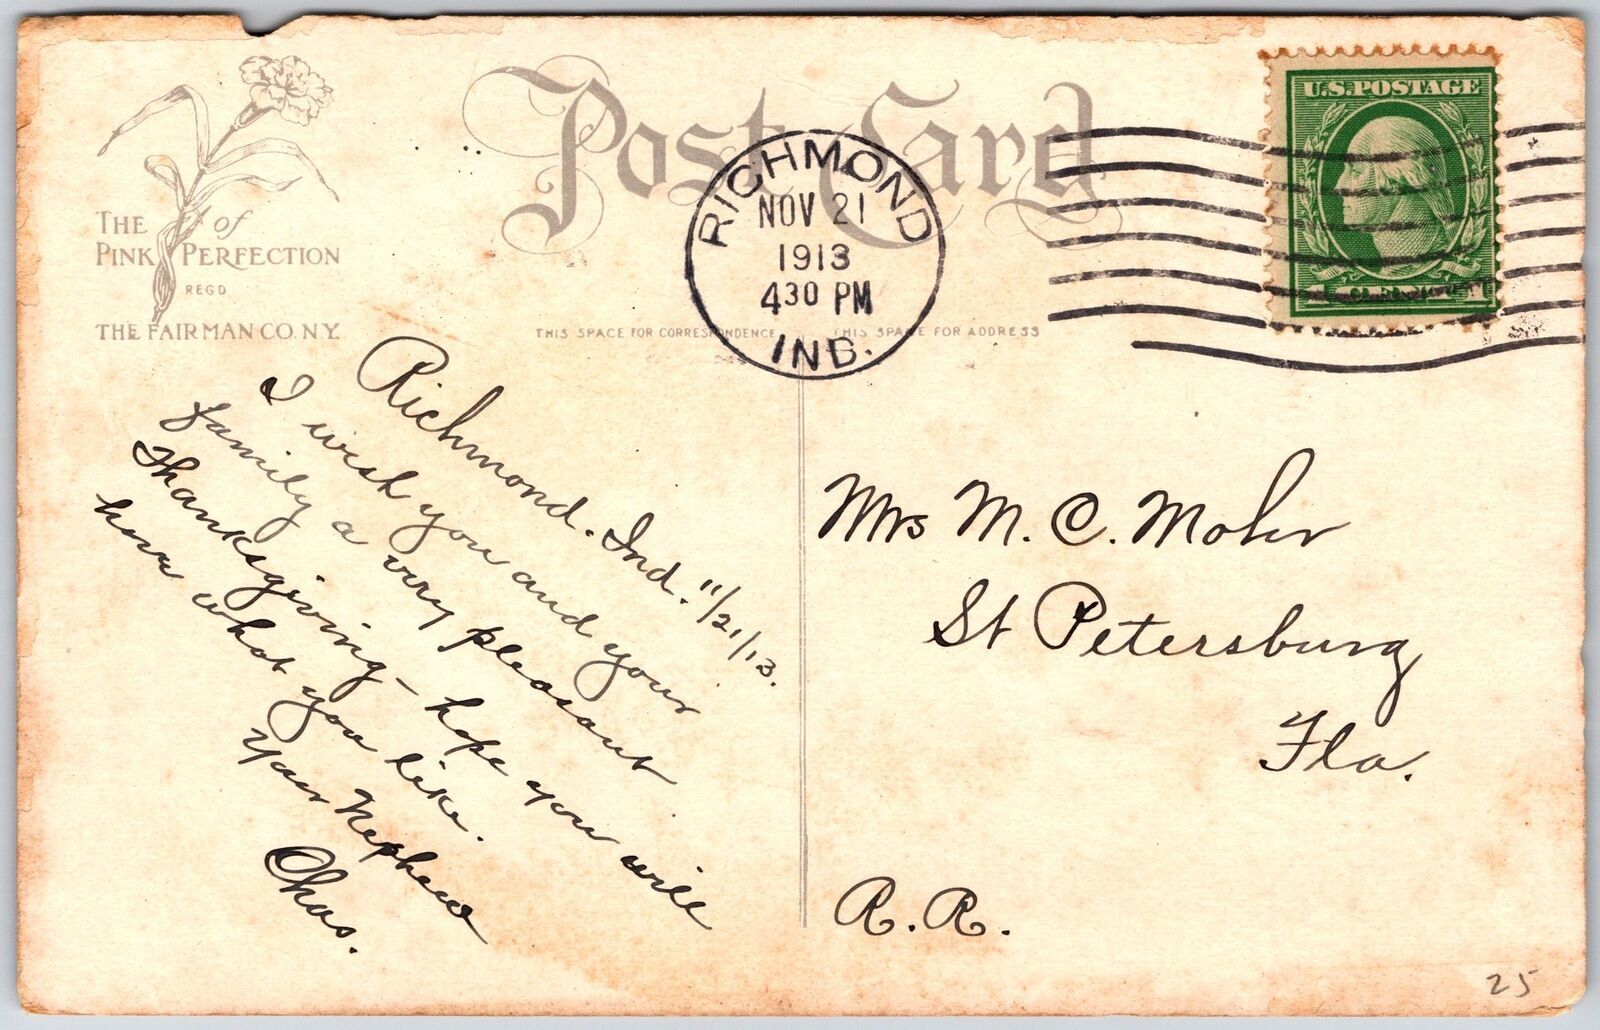 Post Card
THE PINK of PERFECTION
REGD
THE FAIRMAN CO. N.Y.
THIS SPACE FOR CORRESPONDENCE
THIS SPACE FOR ADDRESS
RICHMOND
NOV 21
1913
430 PM
IND.
U.S. POSTAGE
1 CENT 1
Richmond. Ind. 11/21/13.
I wish you and your
family a very pleasant
Thanksgiving - hope you will
have what you like.
Your Nephew
Chas.
Mrs M. C. Mohr
St Petersburg
Fla.
R. R.
25